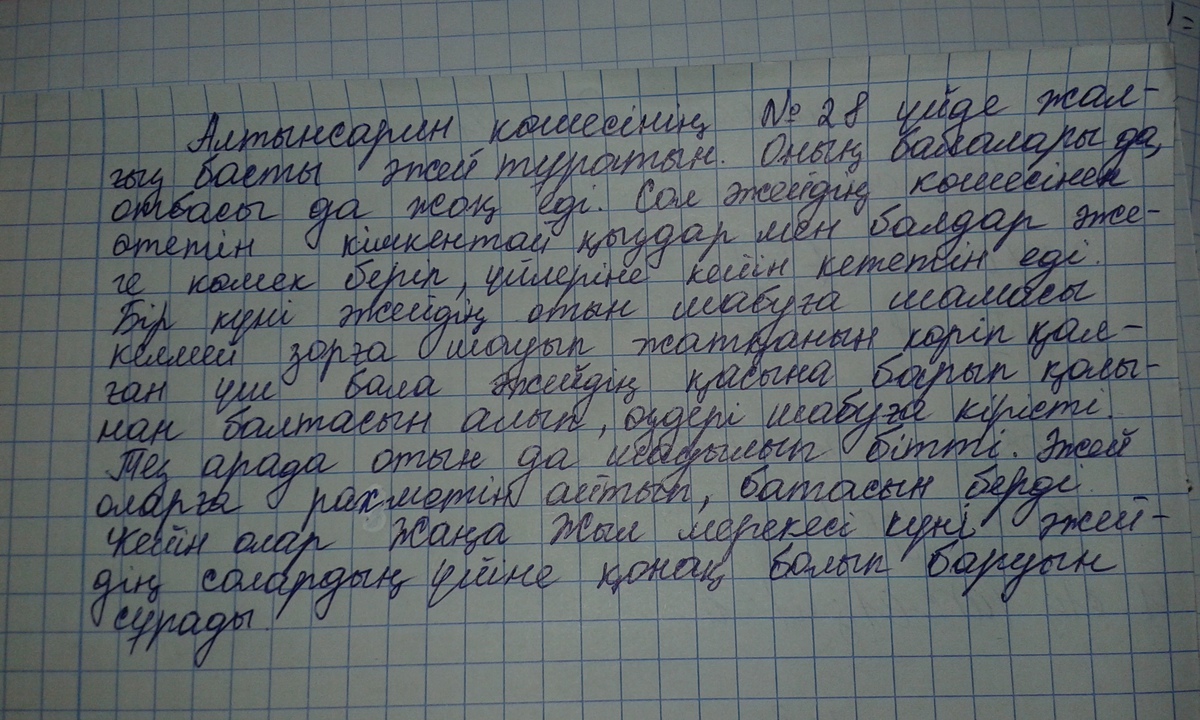 Алтынсарин көшесінің № 28 үйде жал-
ғыз басты әжей тұратын. Оның балалары да,
отбасы да жоқ еді. Сол әжейдің көшесінен
өтетін кішкентай қыздар мен балдар әже-
ге көмек беріп, үйлеріне кейін кететін еді.
Бір күні әжейдің отын шабуға шамасы
келмей зорға шауып жатқанын көріп қал-
ған үш бала әжейдің қасына барып қолы-
нан балтасын алып, өздері шабуға кірісті.
Тез арада отын да шабылып бітті. Әжей
оларға рахметін айтып, батасын берді.
Кейін олар Жаңа Жыл мерекесі күні әжей-
дің солардың үйіне қонақ болып баруын
сұрады.